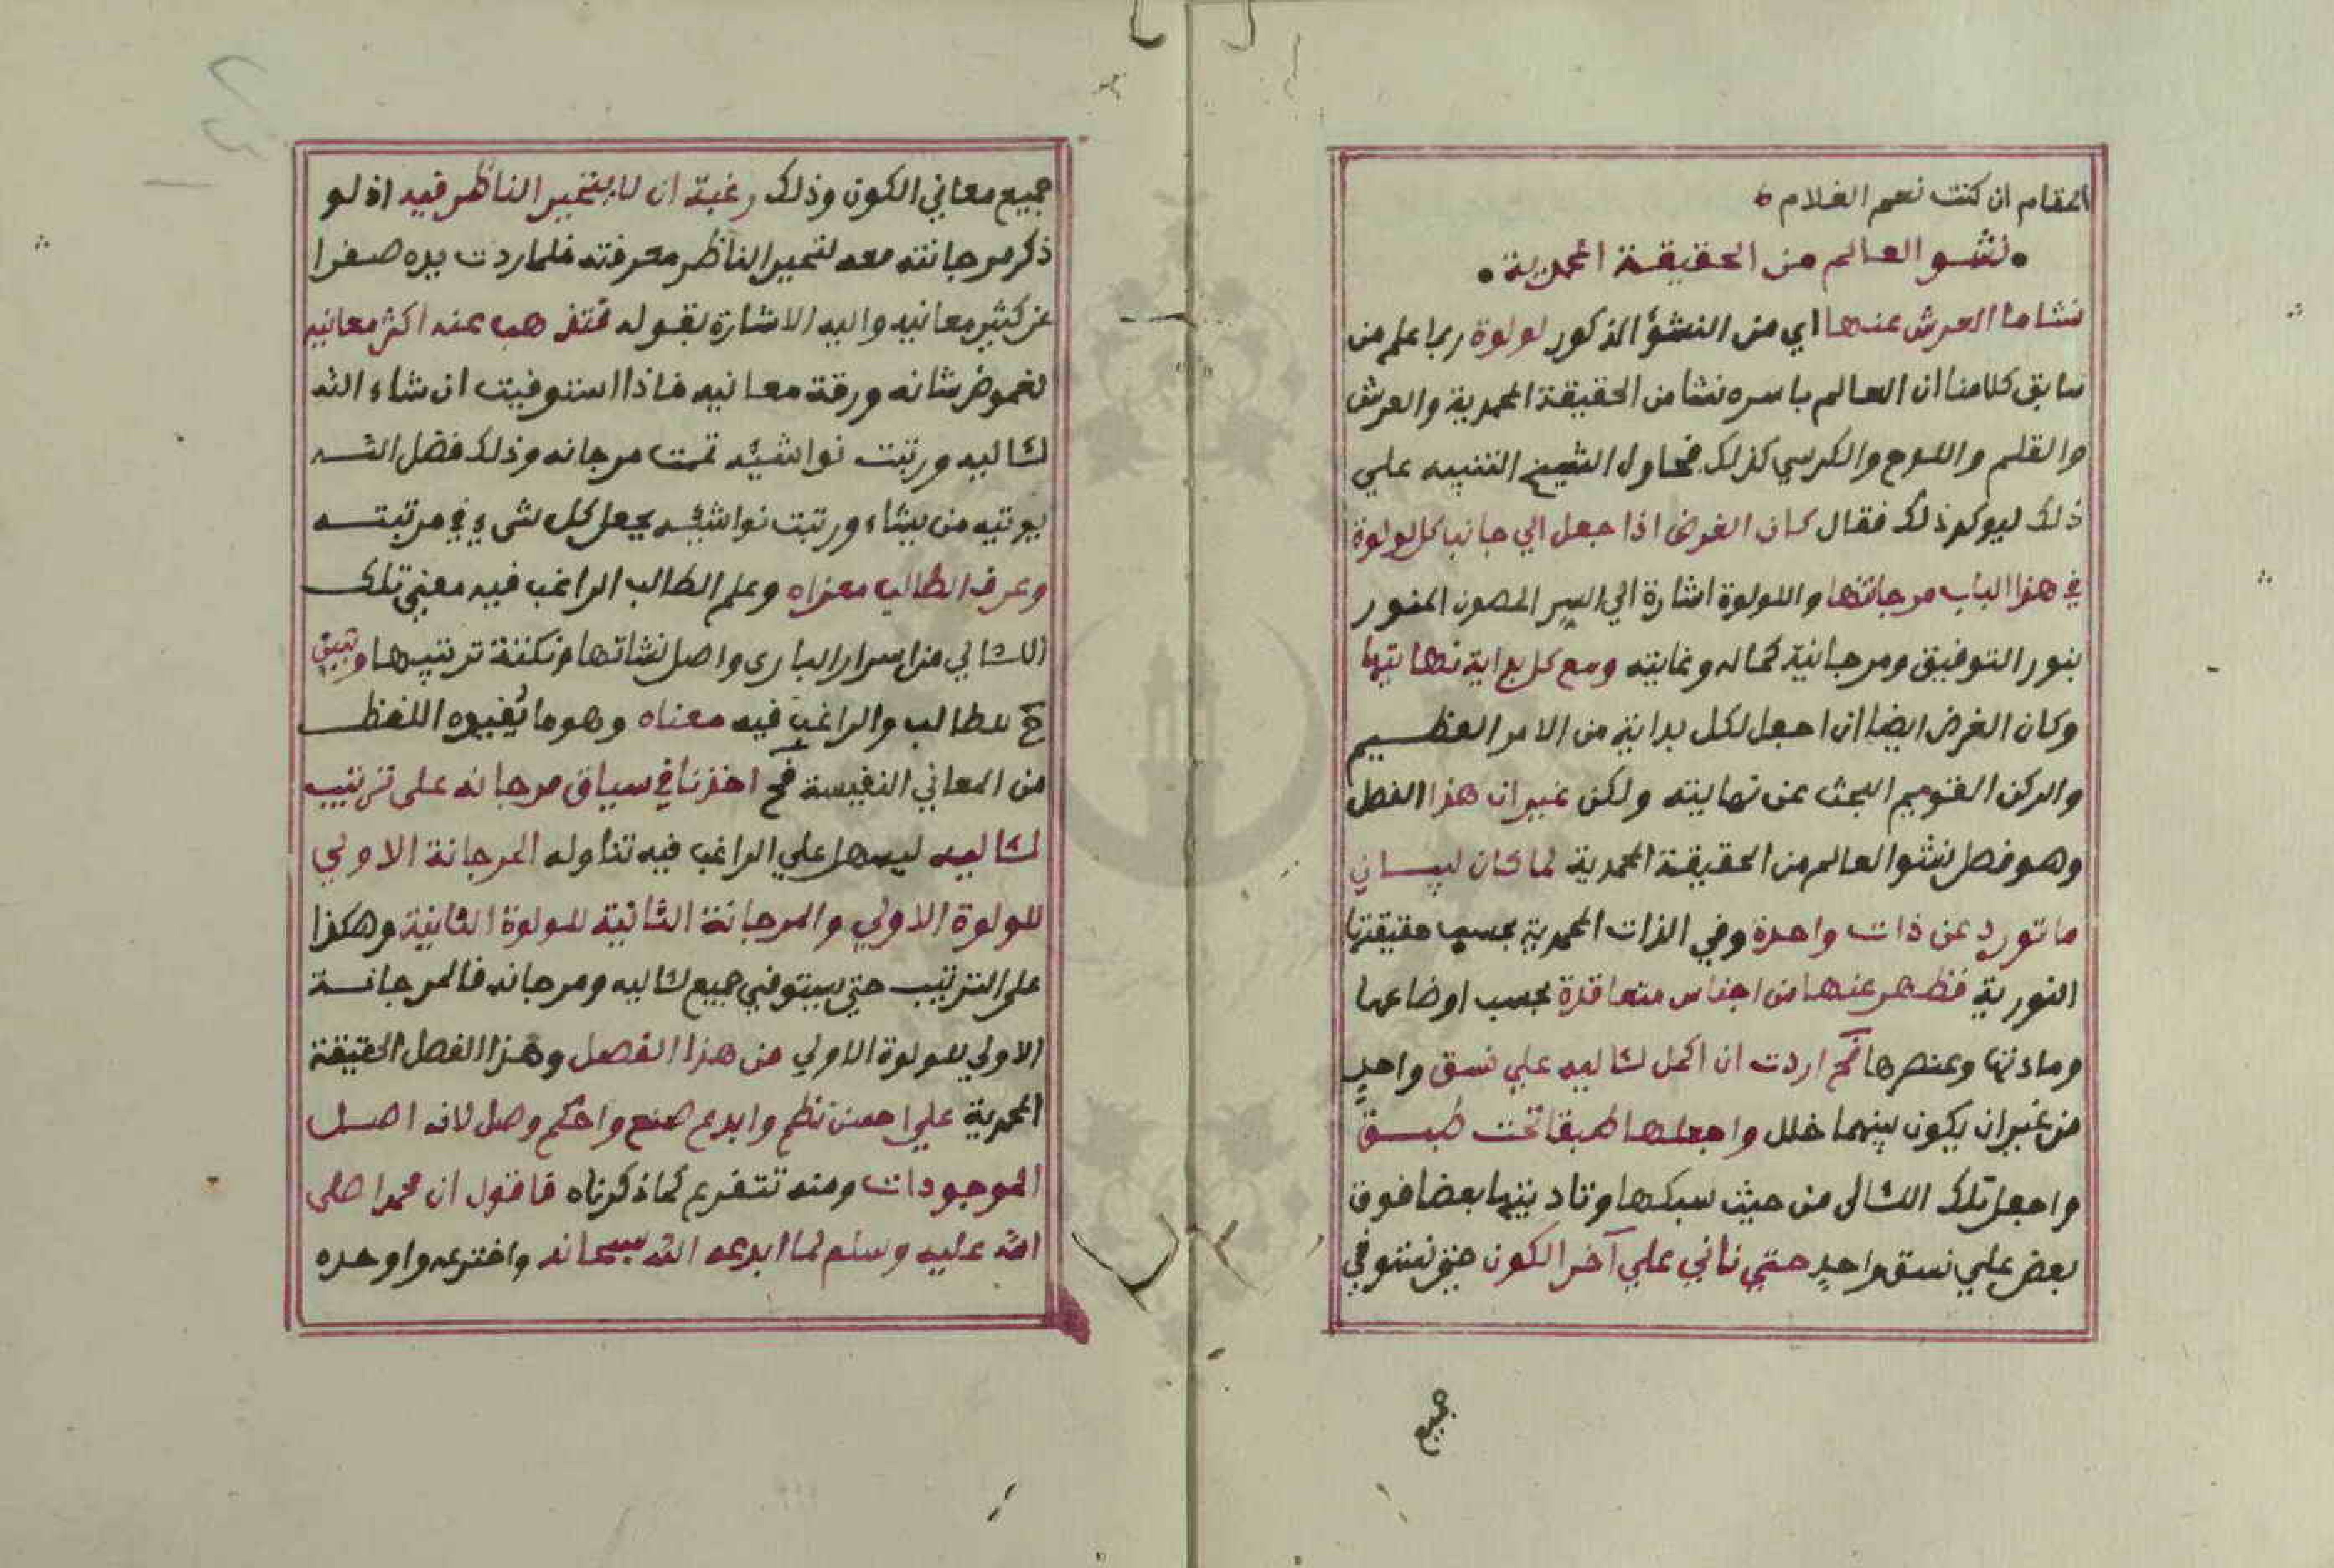 المقام ان كنت نعم الغلام
نشو العالم من الحقيقة المحمدية
نشاما العرش عنها اي من النشؤ المذكور لولوة ربما علم من
سابق كلامنا ان العالم باسره نشا من الحقيقة المحمدية والعرش
والقلم واللوح والكرسي كذلك فحاول الشيخ التنبيه علي
ذلك ليوكد ذلك فقال كان الغرض اذا جعل الي جانب كل لولوة
في هذا الباب مرجانتها واللولوة اشارة الي السر المصون المنور
بنور التوفيق ومرجانية كماله وغايته ومع كل بداية نهايتها
وكان الغرض ايضا ان اجعل لكل بداية من الامر العظيم
والركن القويم البحث عن نهايته ولكن غير ان هذا الفصل
وهو فصل نشو العالم من الحقيقة المحمدية لما كان لساني
ما تورد عن ذات واحدة وفي الذات المحمدية بحسب حقيقتها
النورية فظهر عنها من اجناس متعاقدة بحسب اوضاعها
ومادتها وعنصرها فح اردت ان اكمل لثاليه علي نسق واحد
من غير ان يكون بينهما خلل واجعلها طبقا تحت طبق
واجعل تلك اللثالى من حيث سبكها وتاديتها بعضا فوق
بعض علي نسق واحد حتي ناتي علي آخر الكون حتى نستوفي
جميع
جميع معاني الكون وذلك رغبة ان لا يتحير الناظر فيه اذ لو
ذكر مرجانته معه لتحير الناظر معرفته فلما ردت يده صفرا
عن كثير معانيه واليه الاشارة بقوله فتذهب عنه اكثر معانيه
لغموض شانه ورقة معانيه فاذا استوفيت ان شاء الله
لثاليه ورتبت نواشيه تمت مرجانه وذلك فضل الله
يوتيه من يشاء ورتبت نواشيه يجعل كل شيء في مرتبته
وعرف الطالب مغزاه وعلم الطالب الراغب فيه معني تلك
اللثالي من اسرار البارى واصل نشاتها ونكتة ترتيبها وتبين
ح للطالب والراغب فيه معناه وهو ما يفيده اللفظ
من المعاني النفيسة فح اخذنا في سياق مرجانه على ترتيب
لثاليه ليسهل علي الراغب فيه تناوله المرجانة الاولي
للولوة الاولي والمرجانة الثانية للولوة الثانية وهكذا
على الترتيب حتي يستوفي جميع لثاليه ومرجانه فالمرجانة
الاولي للولوة الاولي من هذا الفصل وهذا الفصل الحقيقة
المحمدية علي احسن نظم وابدع صنع واحكم وصل لانه اصل
الموجودات ومنه تتفرع كما ذكرناه فاقول ان محمدا صلى
الله عليه وسلم لما ابدعه الله سبحانه واخترعه واوجده